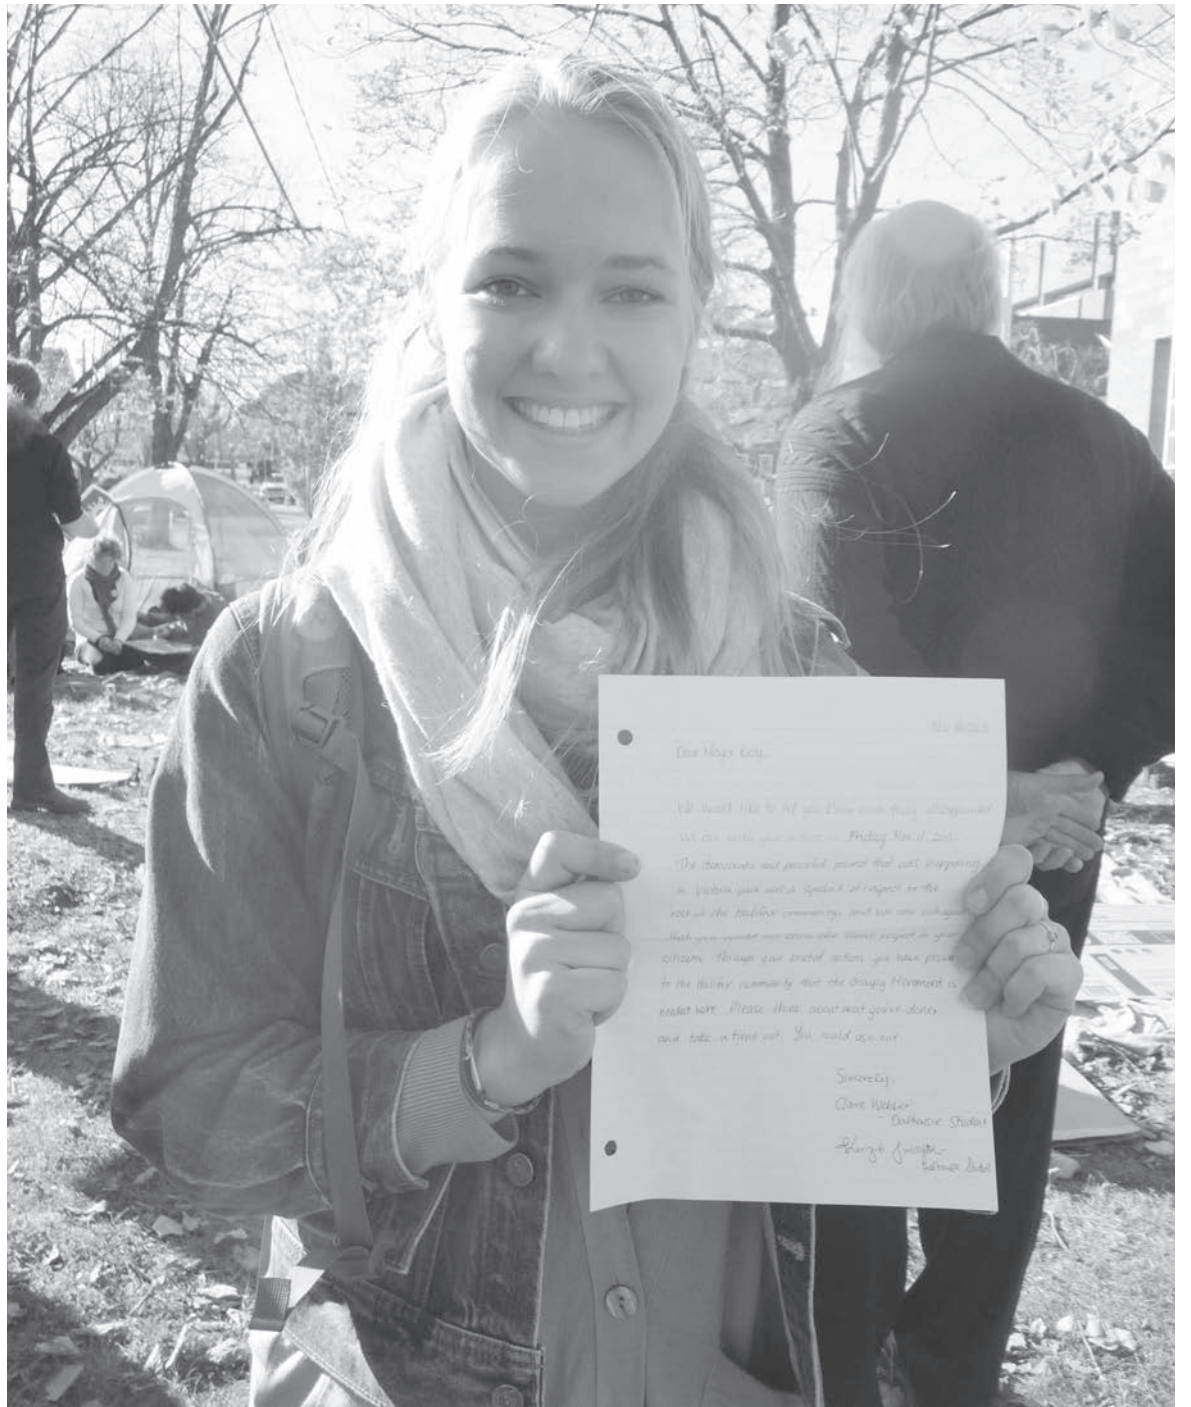 Dear Mayor Kelly,
We would like to let you know how truly disappointed
we are with your actions on Friday Nov. 11, 2011.
The democratic and peaceful protest that was happening
in Victoria park was a symbol of respect to the
rest of the Halifax community, and we are outraged
that you would not show the same respect to your
citizens. Through your brutal actions you have proven
to the Halifax community that the Occupy Movement is
needed here. Please think about what you've done,
and take a time out. You could use one.
Sincerely,
Claire Webber
Dalhousie Student